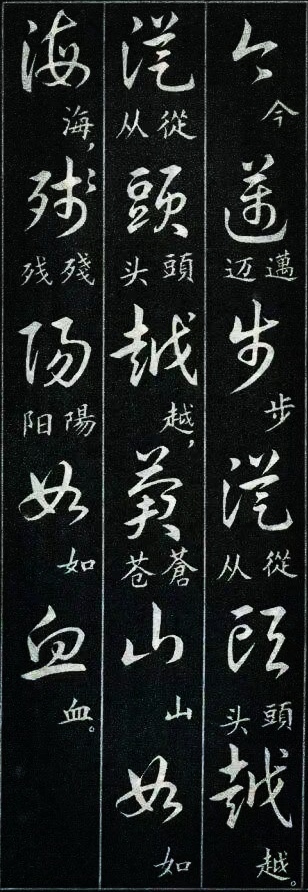 今今邁邁迈步步從從从頭頭头越越。
從從从頭頭头越越，蒼蒼苍山山如如
海海，殘殘残陽陽阳如如血血。